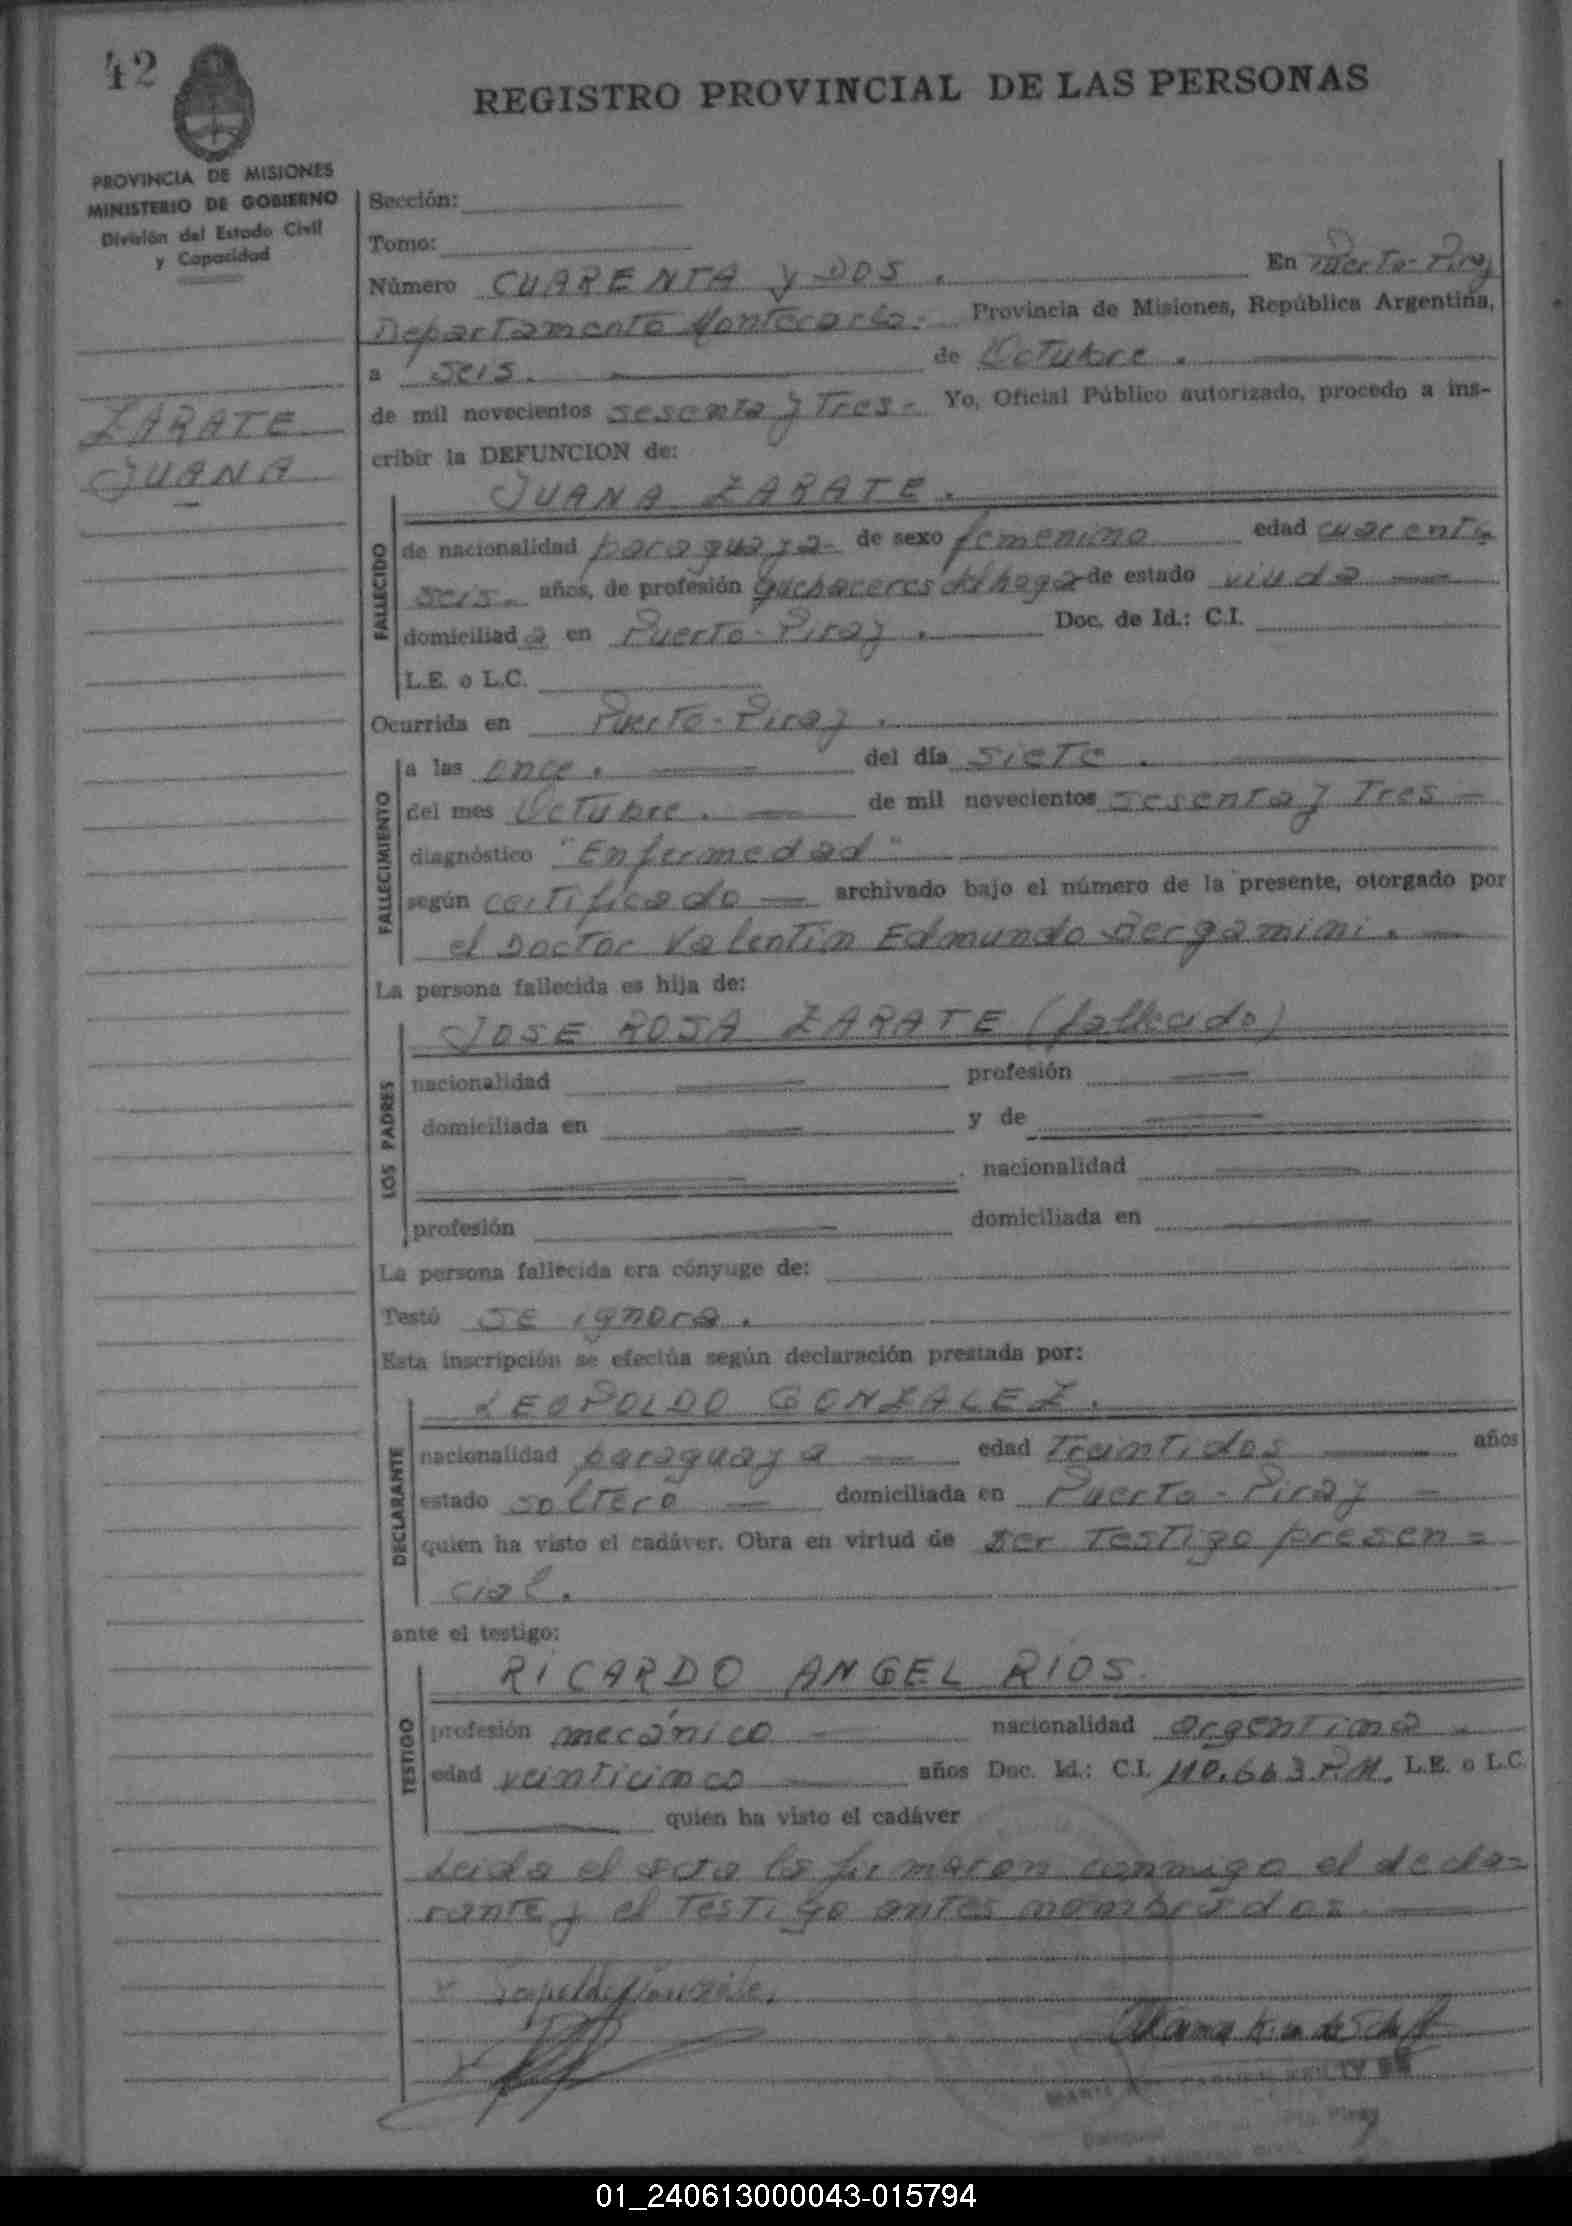 42
REGISTRO PROVINCIAL DE LAS PERSONAS
PROVINCIA DE MISIONES
MINISTERIO DE GOBIERNO
División del Estado Civil
y Capacidad
ZARATE
JUANA
Sección:
Tomo:
Número CUARENTA y DOS. En Puerto-Piray
Departamento Montecarlo.- Provincia de Misiones, República Argentina,
a seis. de Octubre.
de mil novecientos sesenta y Tres- Yo, Oficial Público autorizado, procedo a ins-
cribir la DEFUNCION de:
JUANA ZARATE.
FALLECIDO
de nacionalidad paraguaya- de sexo femenino edad cuarenta
seis- años, de profesión quehaceres del hogar de estado viuda
domiciliad a en Puerto-Piray. Doc. de Id.: C.I.
L.E. o L.C.
Ocurrida en Puerto-Piray.
FALLECIMIENTO
a las once. del día siete.
del mes Octubre. de mil novecientos sesenta y Tres-
diagnóstico "Enfermedad"
según certificado archivado bajo el número de la presente, otorgado por
el Doctor Valentin Edmundo Bergamini.
La persona fallecida es hija de:
LOS PADRES
JOSE ROSA ZARATE (fallecido)
nacionalidad profesión
domiciliada en y de
nacionalidad
profesión domiciliada en
La persona fallecida era cónyuge de:
Testó se ignora.
Esta inscripción se efectúa según declaración prestada por:
DECLARANTE
LEOPOLDO GONZALEZ.
nacionalidad paraguaya edad Treintidos años
estado soltero domiciliada en Puerto-Piray-
quien ha visto el cadáver. Obra en virtud de ser Testigo presen=
cial.
ante el testigo:
TESTIGO
RICARDO ANGEL RIOS.
profesión mecánico nacionalidad argentina
edad veinticinco años Doc. Id.: C.I. 110.663 P.M. L.E. o L.C.
quien ha visto el cadáver
Leida el acta la firmaron conmigo el decla=
rante y el Testigo antes nombrados.
Leopoldo Gonzalez
01_240613000043-015794